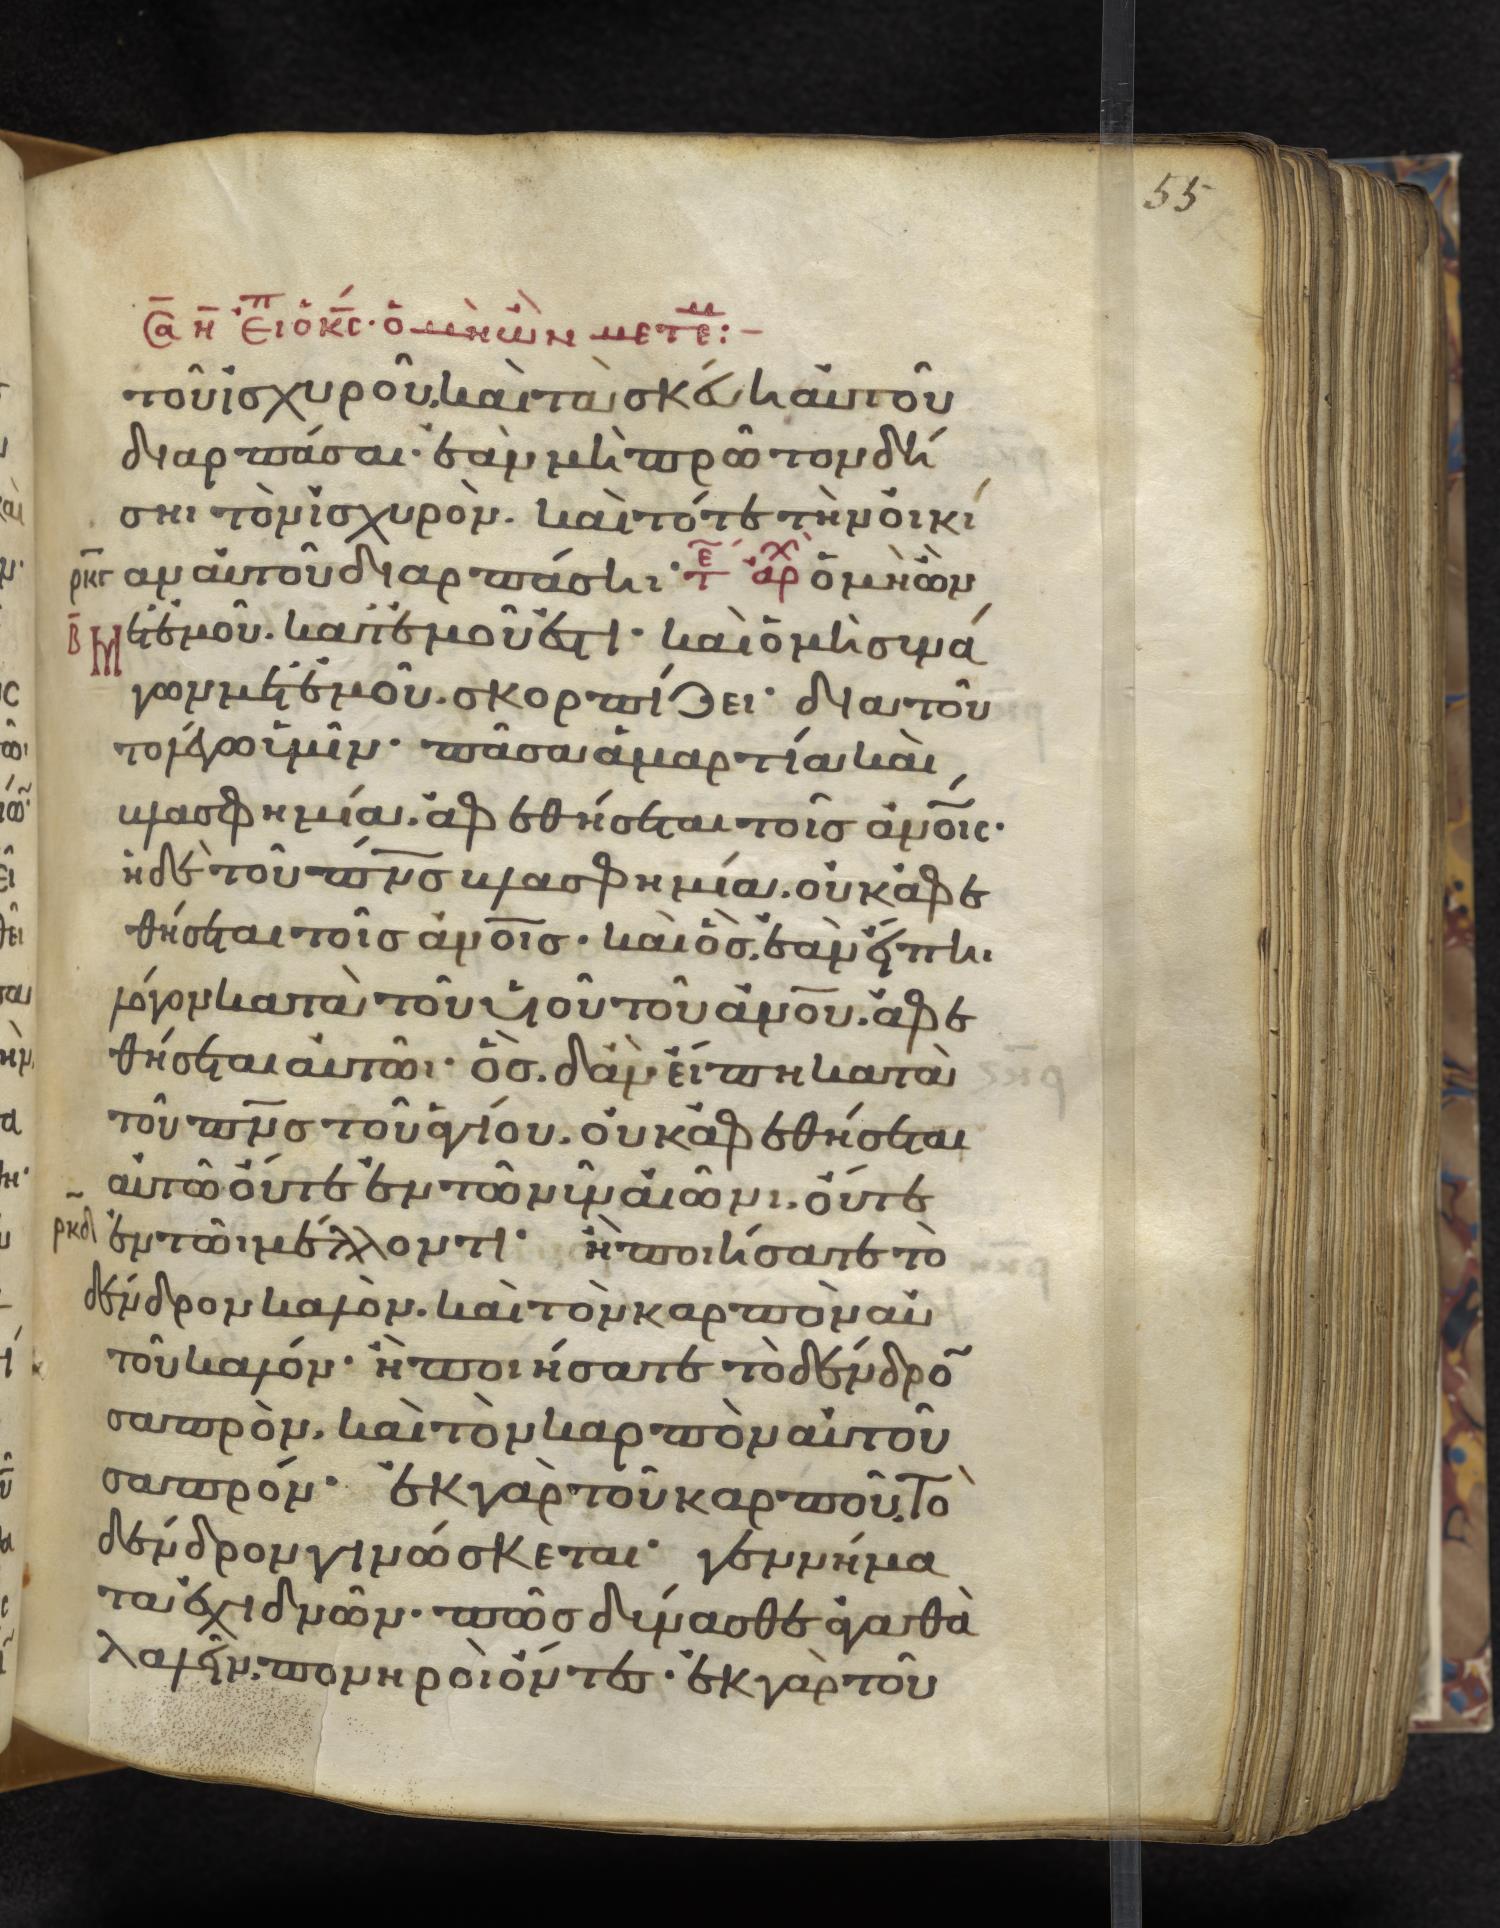 55
ᾱ η̄ εἶπ ὁ κ̄ς· ὁ μὴ ὢν μετ ἐμ:–
τοῦ ἰσχυροῦ, καὶ τὰ σκεύη αὐτοῦ
διαρπάσαι· ἐὰν μὴ πρῶτον δή
σηι τὸν ἰσχυρὸν. καὶ τότε τὴν οἰκί
ρκγ αν αὐτοῦ διαρπάσηι· τε ἀρχ ὁ μὴ ὢν
β̄ Μετ ἐμοῦ. κατ ἐμοῦ ἐστι· καὶ ὁ μὴ συνά
γων μετ ἐμοῦ. σκορπίζει· διὰ τοῦ
το λέγω ὑμῖν· πᾶσα ἁμαρτία καὶ
βλασφημία. ἀφεθήσεται τοῖς ἀν̅οις·
ἡ δὲ τοῦ πν̅ς βλασφημία. οὐκ ἀφε
θήσεται τοῖς ἀν̅οις· καὶ ὃς. ἐὰν εἴπηι
λόγον κατὰ τοῦ υἱοῦ τοῦ ἀν̅ου. ἀφε
θήσεται αὐτῶι· ὃς. δ ἂν εἴπη κατὰ
τοῦ πν̅ς τοῦ ἁγίου. οὐκ ἀφεθήσεται
αὐτῶ οὔτε ἐν τῶ νῦν αἰῶνι. οὔτε
ρκδ ἐν τῶι μέλλοντι· ἢ ποιήσατε τὸ
δένδρον καλὸν. καὶ τὸν καρπὸν αὐ
τοῦ καλόν· ἢ ποιήσατε τὸ δένδρο̅
σαπρὸν. καὶ τὸν καρπὸν αὐτοῦ
σαπρόν· ἐκ γὰρ τοῦ καρποῦ. Τὸ
δένδρον γινώσκεται· γεννήμα
τα ἐχιδνῶν· πῶς δύνασθε ἀγαθὰ
λαλεῖν. πονηροὶ ὄντες· ἐκ γὰρ τοῦ